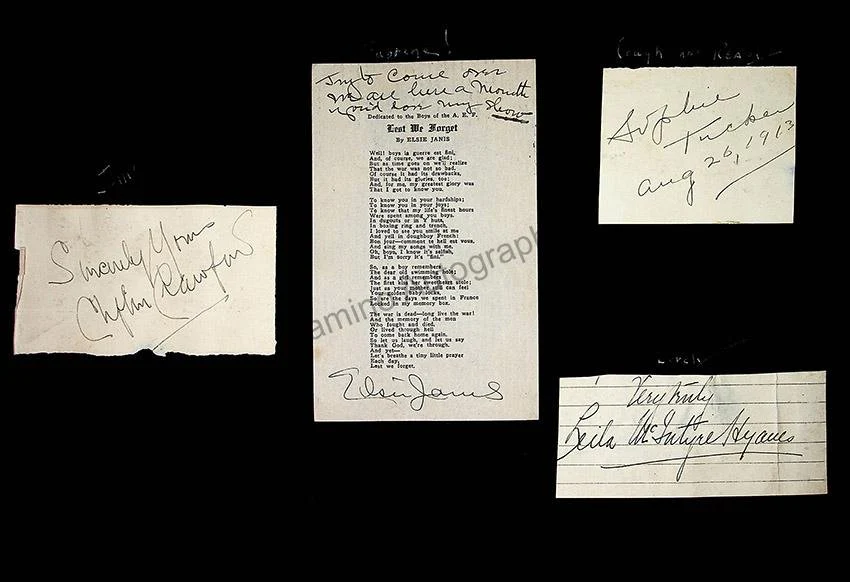 Rough and Ready
Try to Come over
We are here a Month
you'd love my Show
Dedicated to the Boys of the A. E. F.
Lest We Forget
By ELSIE JANIS
Well! boys la guerre est fini,
And, of course, we are glad;
But as time goes on we'll realize
That the war was not so bad.
Of course it had its drawbacks,
But it had its glories, too;
And, for me, my greatest glory was
That I got to know you.
To know you in your hardships;
To know you in your joys;
To know that my life's finest hours
Were spent among you boys.
In dugouts or in Y huts,
In boxing ring and trench,
I loved to see you smile at me
And yell in doughboy French:
Bon jour—comment te hell est vous,
And sing my songs with me,
Oh, boys, I know it's selfish,
But I'm sorry it's "fini."
So, as a boy remembers
The dear old swimming hole;
And as a girl remembers
The first kiss her sweetheart stole;
Just as your mother still can feel
Your golden baby locks,
So are the days we spent in France
Locked in my memory box.
The war is dead—long live the war!
And the memory of the men
Who fought and died,
Or lived through hell
To come back home again.
So let us laugh, and let us say
Thank God, we're through.
And yet—
Let's breathe a tiny little prayer
Each day,
Lest we forget.
Elsie Janis
Sophie
Tucker
Aug 26, 1913
Sincerely Yours
Clifton Crawford
Very truly
Leila McIntyre Hyams